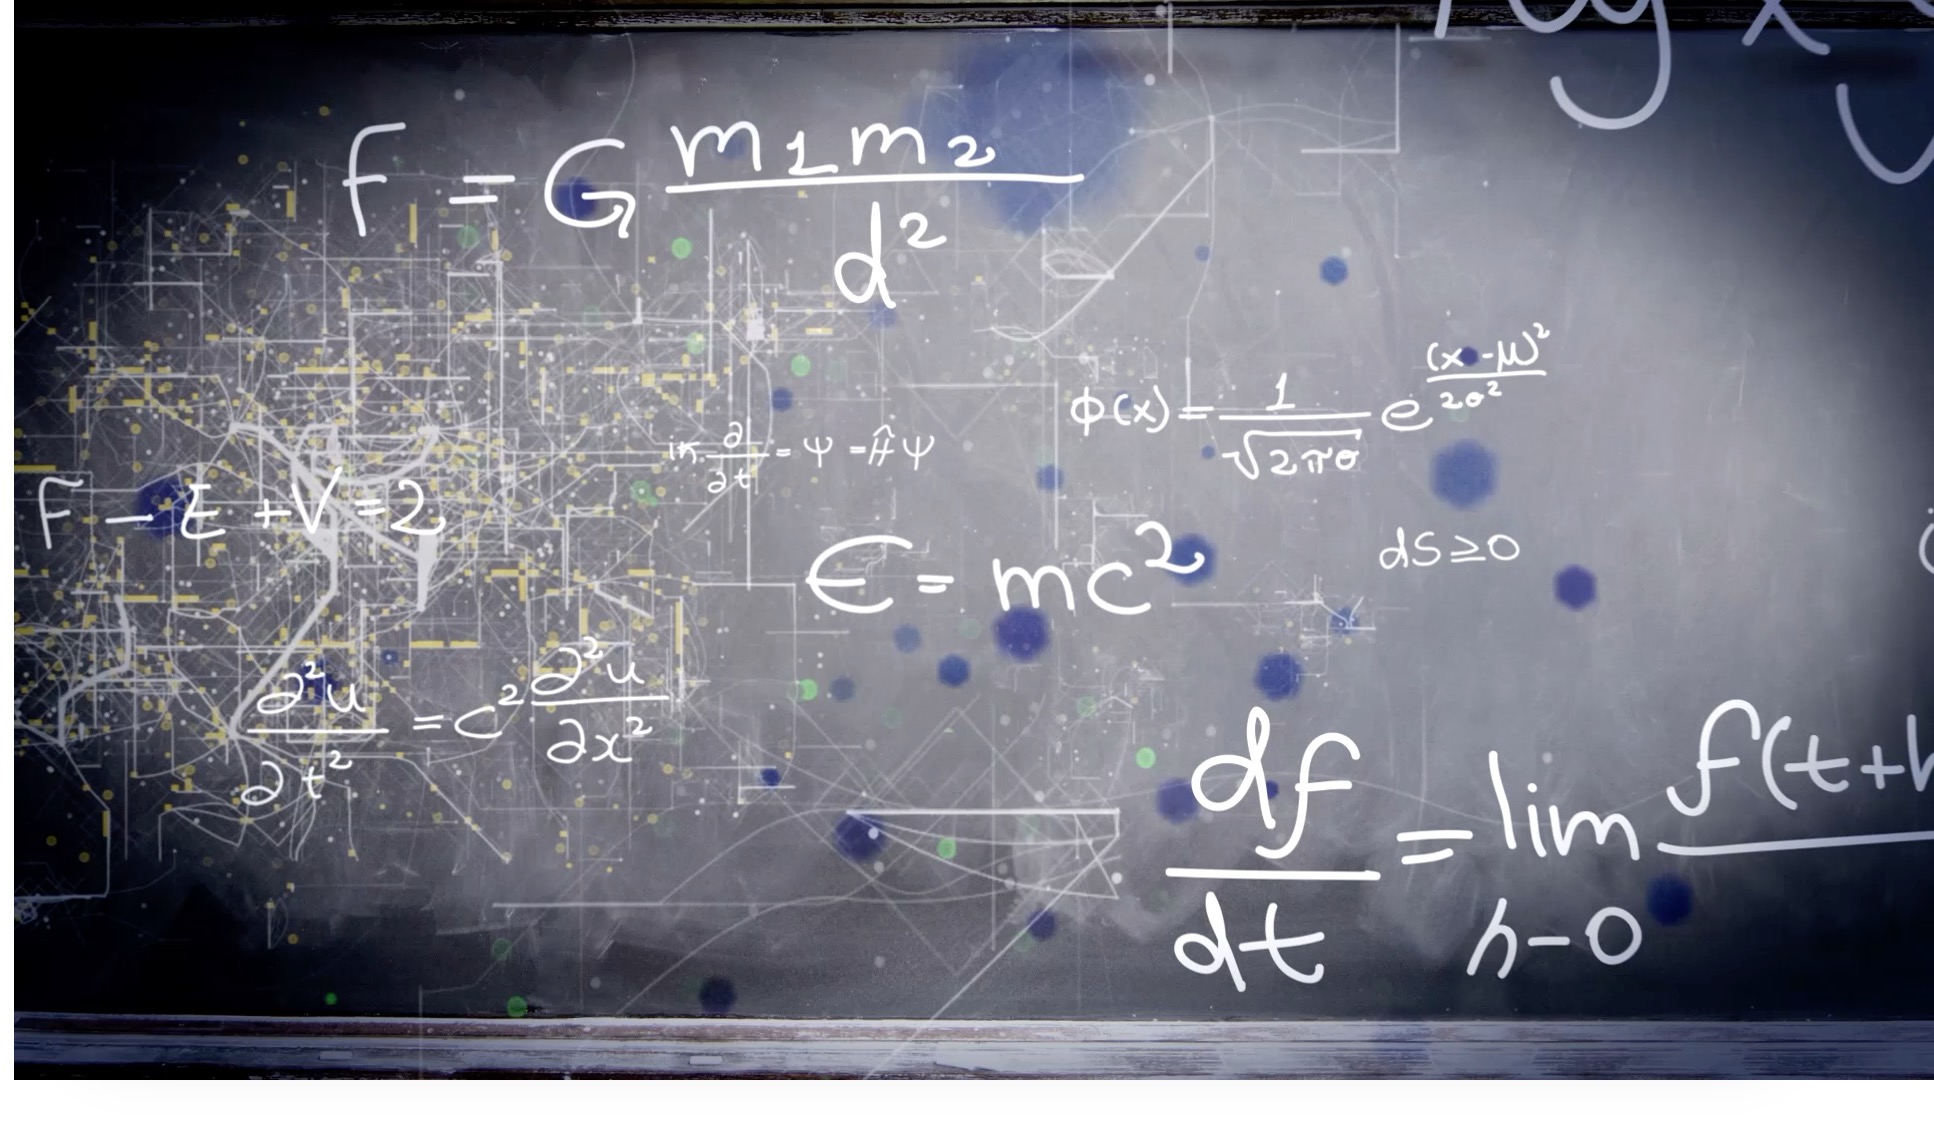 F = G m1m2 / d²
ϕ(x) = 1 / √2πσ e (x-μ)² / 2σ²
iħ ∂/∂t = Ψ = Ĥ Ψ
F - E + V = 2
E = mc²
dS ≥ 0
∂²u / ∂t² = c² ∂²u / ∂x²
df / dt = lim h-0 f(t+h